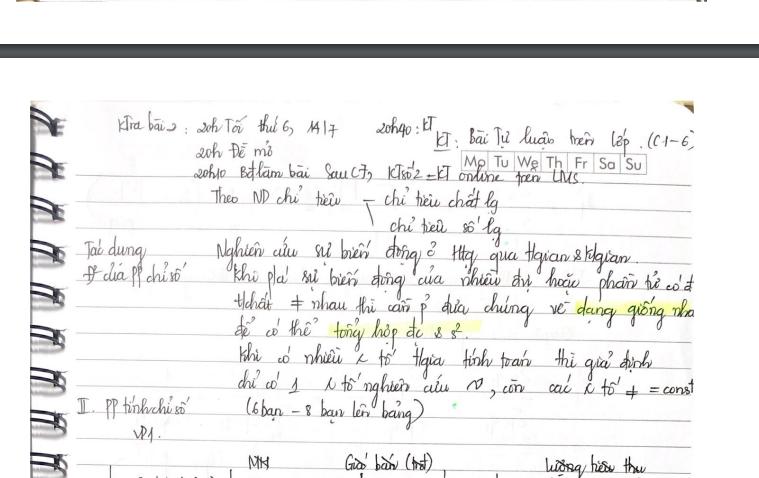 KTra bài 2 : 20h Tối thứ 6, 14/7 20h40 : KT
KT : Bài Tự luận trên lớp . (C1-6)
20h Đề mở
Mo Tu We Th Fr Sa Su
20h10 Bđ làm bài Sau C7, KT số 2 = KT online trên LMS.
Theo ND chỉ tiêu - chỉ tiêu chất lg
chỉ tiêu số lg
Tác dụng Nghiên cứu sự biến động of Htg qua tgian & kgian.
của PP chỉ số Khi p/a sự biến động của nhiều đvị hoặc phần tử có
t/chất ≠ nhau thì cần p đưa chúng về dạng giống nha
để có thể tổng hợp đc & s².
Khi có nhiều tố tgia tính toán thì giả định
chỉ có 1 tố nghiên cứu , còn các tố ≠ = const
II. PP tính chỉ số (6 bạn - 8 bạn lên bảng)
VD1.
MH Giá bán (trđ) lượng tiêu thụ